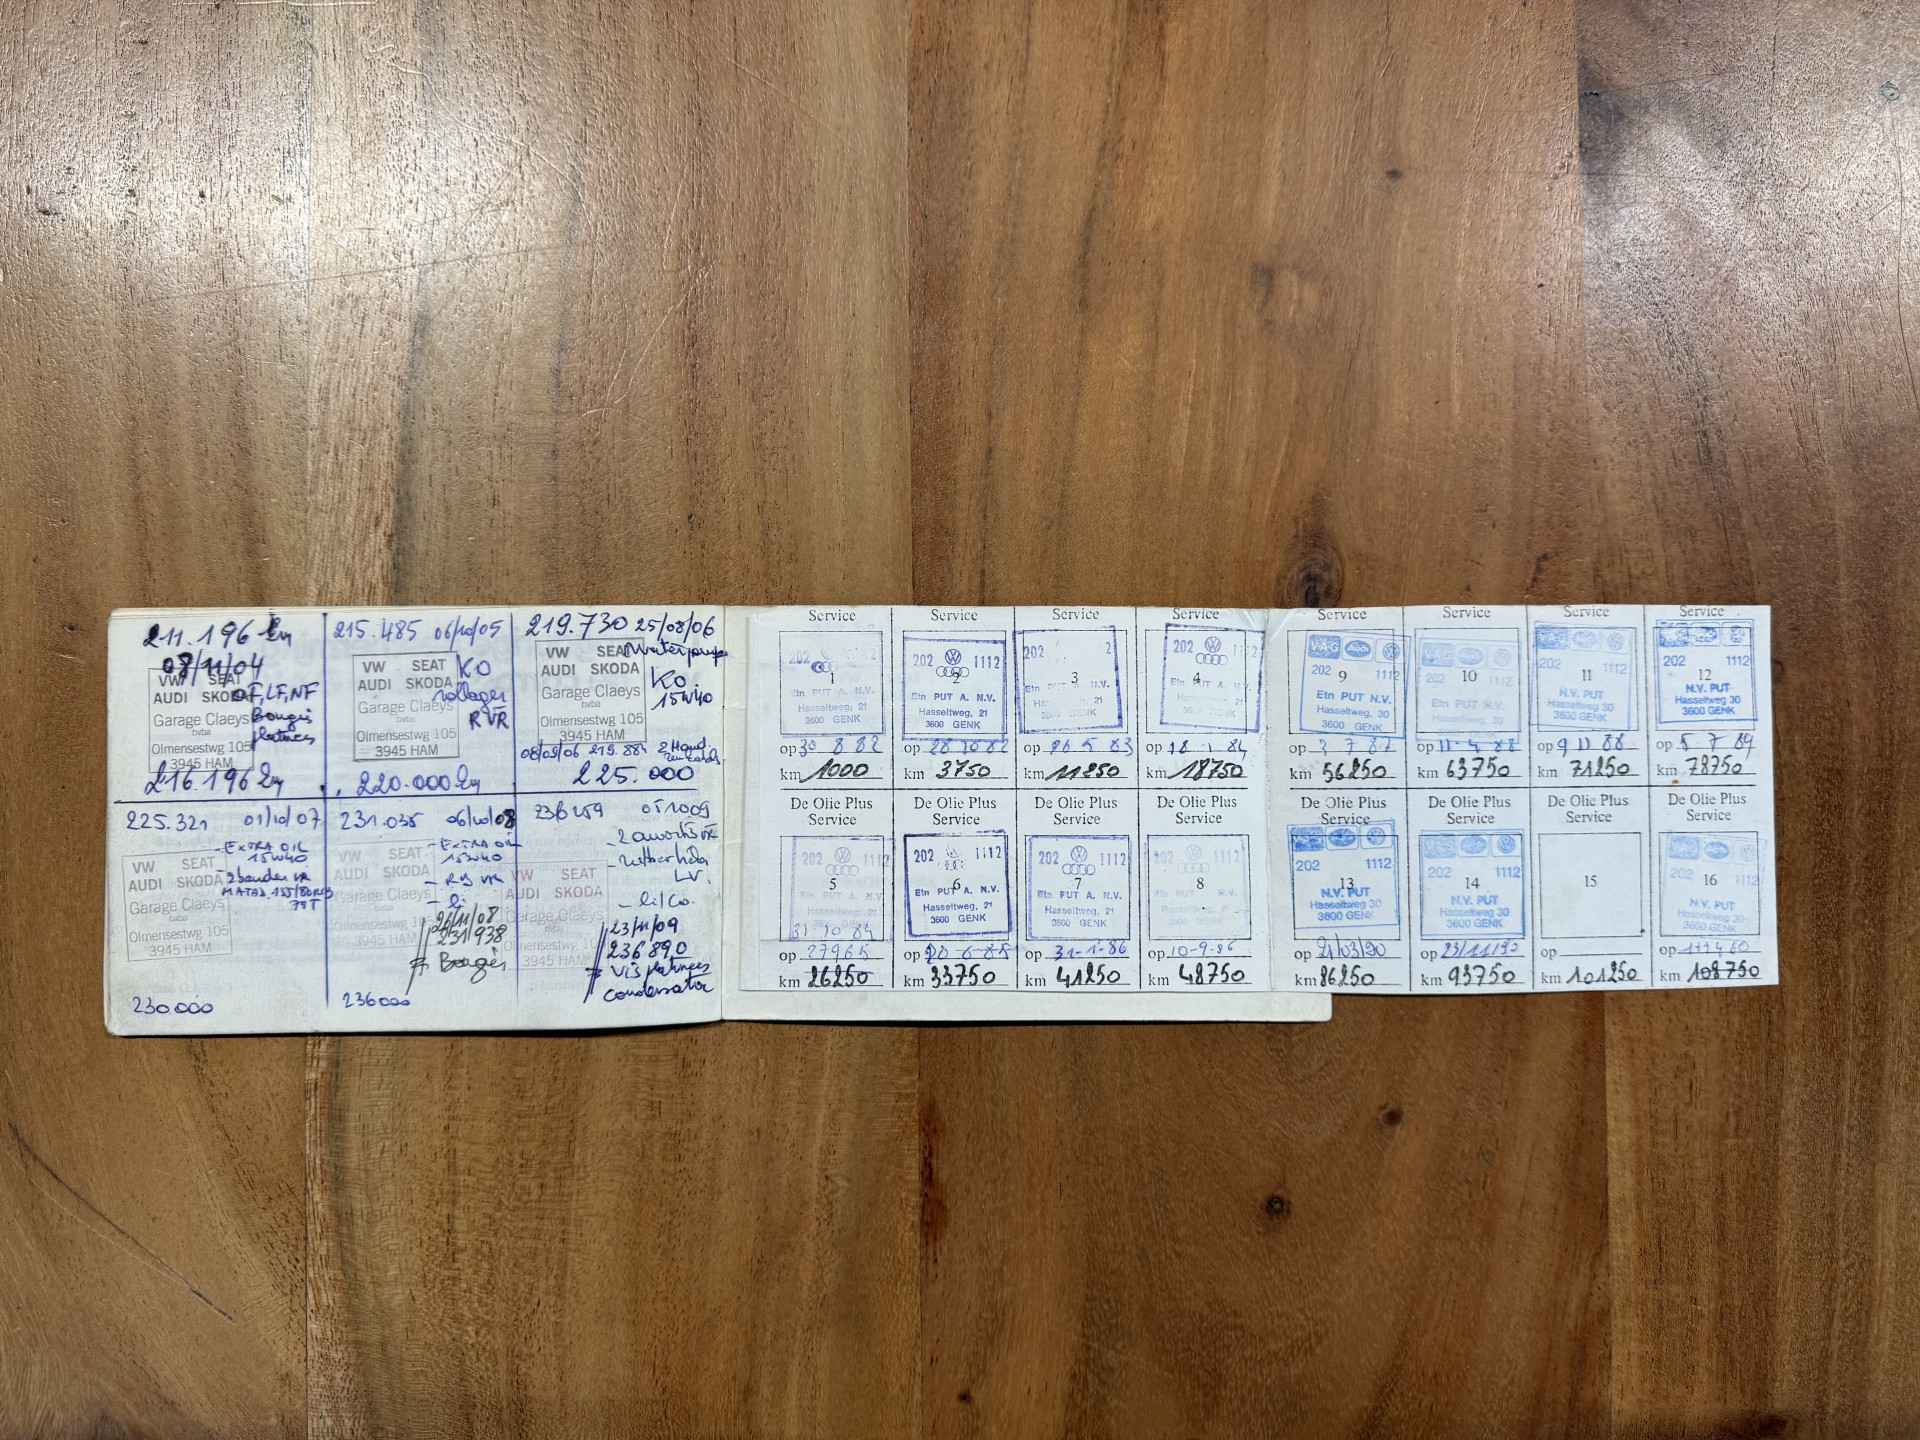 211.196 km
08/11/04
VW SEAT
AUDI SKODA
OF, LF, NF
Garage Claeys
bvba
Bougies
platinees
Olmensestwg 105
3945 HAM
216.196 km
215.485 06/10/05
VW SEAT
AUDI SKODA
KO
Garage Claeys
bvba
RVR
Olmensestwg 105
3945 HAM
220.000 km
219.730 25/08/06
Waterpomp
VW SEAT
AUDI SKODA
KO
15W40
Garage Claeys
bvba
Olmensestwg 105
3945 HAM
08/09/06 219.884
225.000
225.321 01/10/07
- EXTRA OIL
15W40
VW SEAT
AUDI SKODA
- 2 banden VR
MATAD 155/80R13
79T
Garage Claeys
bvba
Olmensestwg 105
3945 HAM
230.000
231.035 06/10/08
- EXTRA OIL
15W40
VW SEAT
AUDI
Garage Claeys
- li
26/11/08
231 938
Bougies
3945 HAM
236000
236 259 051009
- 2 amorts VR
VW SEAT
AUDI SKODA
LV.
Garage Claeys
- li/co.
23/11/09
236 890
Vis platinees
condensator
3945 HAM
Service
202
1
Etn PUT A. N.V.
Hasseltweg, 21
3600 GENK
op 30 8 82
km 1000
Service
202 1112
2
Etn PUT A. N.V.
Hasseltweg, 21
3600 GENK
op 28 10 82
km 3750
Service
202 2
3
Etn PUT A. N.V.
21
op 26 5 83
km 11250
Service
202 1112
4
Etn PUT A. N.V.
Hasseltweg, 21
3600 GENK
op 18 1 84
km 18750
De Olie Plus
Service
202 1112
5
Etn PUT A. N.V.
Hasseltweg, 21
3600 GENK
31 10 84
op 27965
km 26250
De Olie Plus
Service
202 1112
6
Etn PUT A. N.V.
Hasseltweg, 21
3600 GENK
op 20-6-85
km 33750
De Olie Plus
Service
202 1112
7
Etn PUT A. N.V.
Hasseltweg, 21
3600 GENK
op 31-1-86
km 41250
De Olie Plus
Service
202
8
op 10-9-86
km 48750
Service
V·A·G Audi
202 1112
9
Etn PUT N.V.
Hasseltweg, 30
3600 GENK
op 3 7 87
km 56250
Service
202 1112
10
Etn PUT N.V.
Hasseltweg, 30
op 11-4 88
km 63750
Service
202 1112
11
N.V. PUT
Hasseltweg 30
3600 GENK
op 9 11 88
km 71250
Service
202 1112
12
N.V. PUT
Hasseltweg 30
3600 GENK
op 5 7 89
km 78750
De Olie Plus
Service
202 1112
13
N.V. PUT
Hasseltweg 30
3600 GENK
op 21/03/90
km 86250
De Olie Plus
Service
202 1112
14
N.V. PUT
Hasseltweg 30
3600 GENK
op 23/11/90
km 93750
De Olie Plus
Service
15
op
km 101250
De Olie Plus
Service
202 1112
16
N.V. PUT
Hasseltweg 30
3600 GENK
op 111460
km 108750